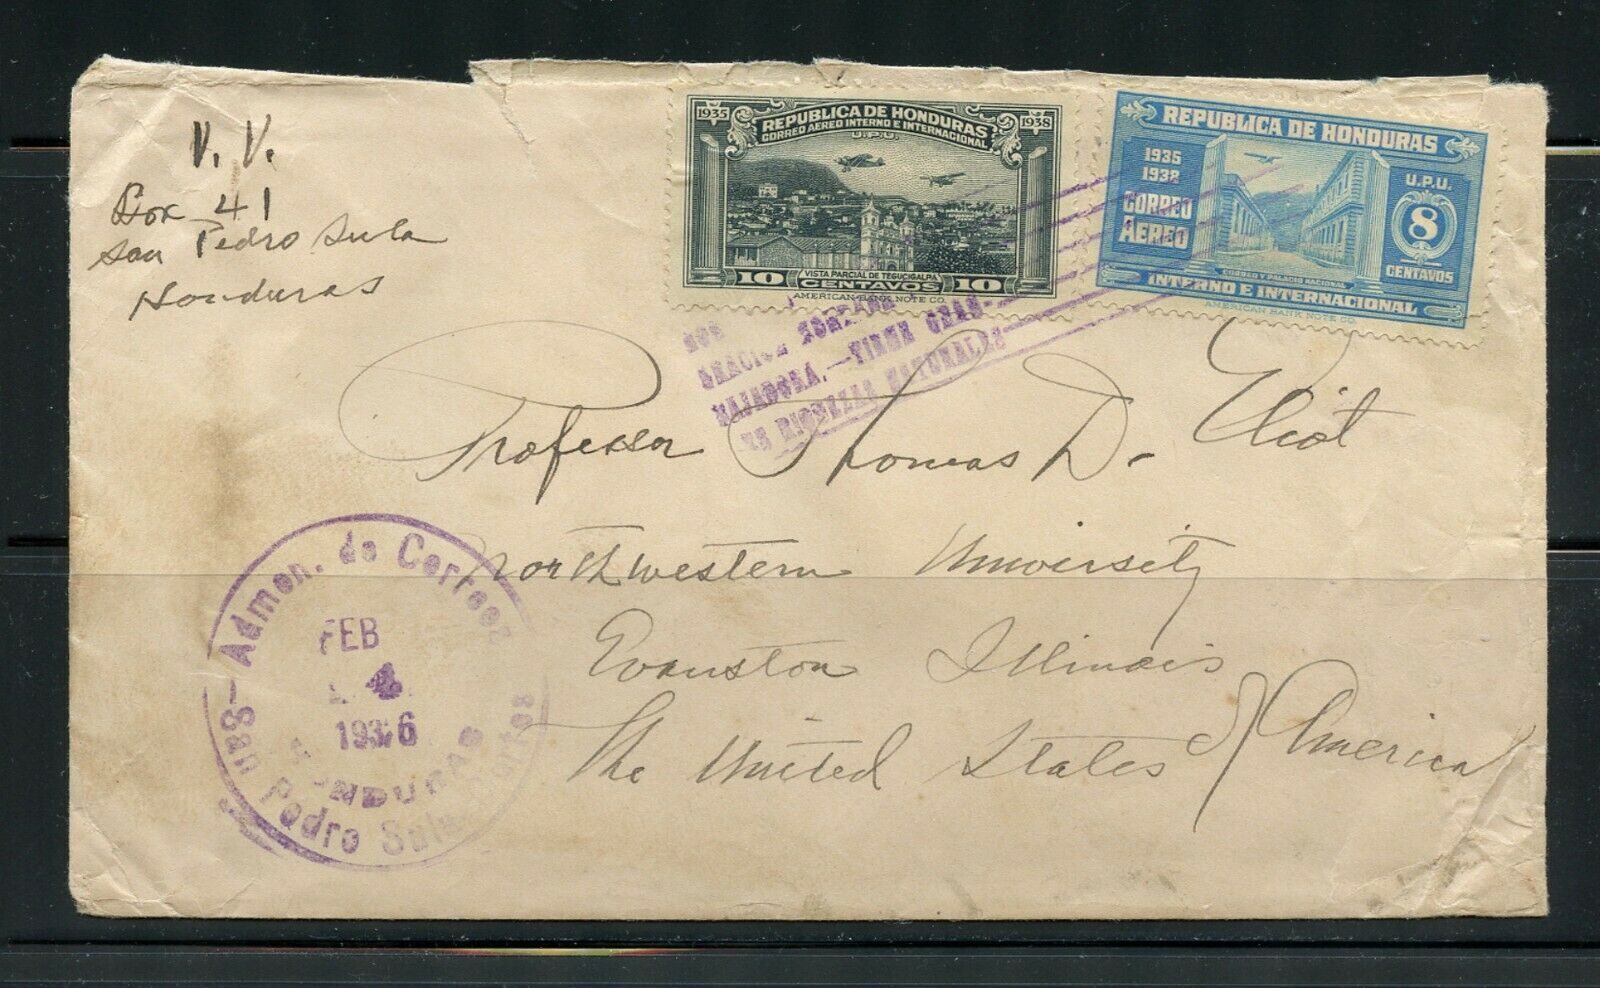 V. V.
Box 41
San Pedro Sula
Honduras
1935 REPUBLICA DE HONDURAS 1938
CORREO AEREO INTERNO E INTERNACIONAL
U.P.U.
10 VISTA PARCIAL DE TEGUCIGALPA 10
CENTAVOS
AMERICAN BANK NOTE CO.
REPUBLICA DE HONDURAS
1935
1938
CORREO
AEREO
U.P.U.
8
CENTAVOS
CORREO Y PALACIO NACIONAL
INTERNO E INTERNACIONAL
AMERICAN BANK NOTE CO.
BAJADORA.—TIENE GRAN-
ES RIQUEZAS NATURALES
Professor Thomas D. Eliot
Northwestern University
Evanston Illinois
The United States of America
Admon. de Correos
FEB
4
1936
HONDURAS
San Pedro Sula